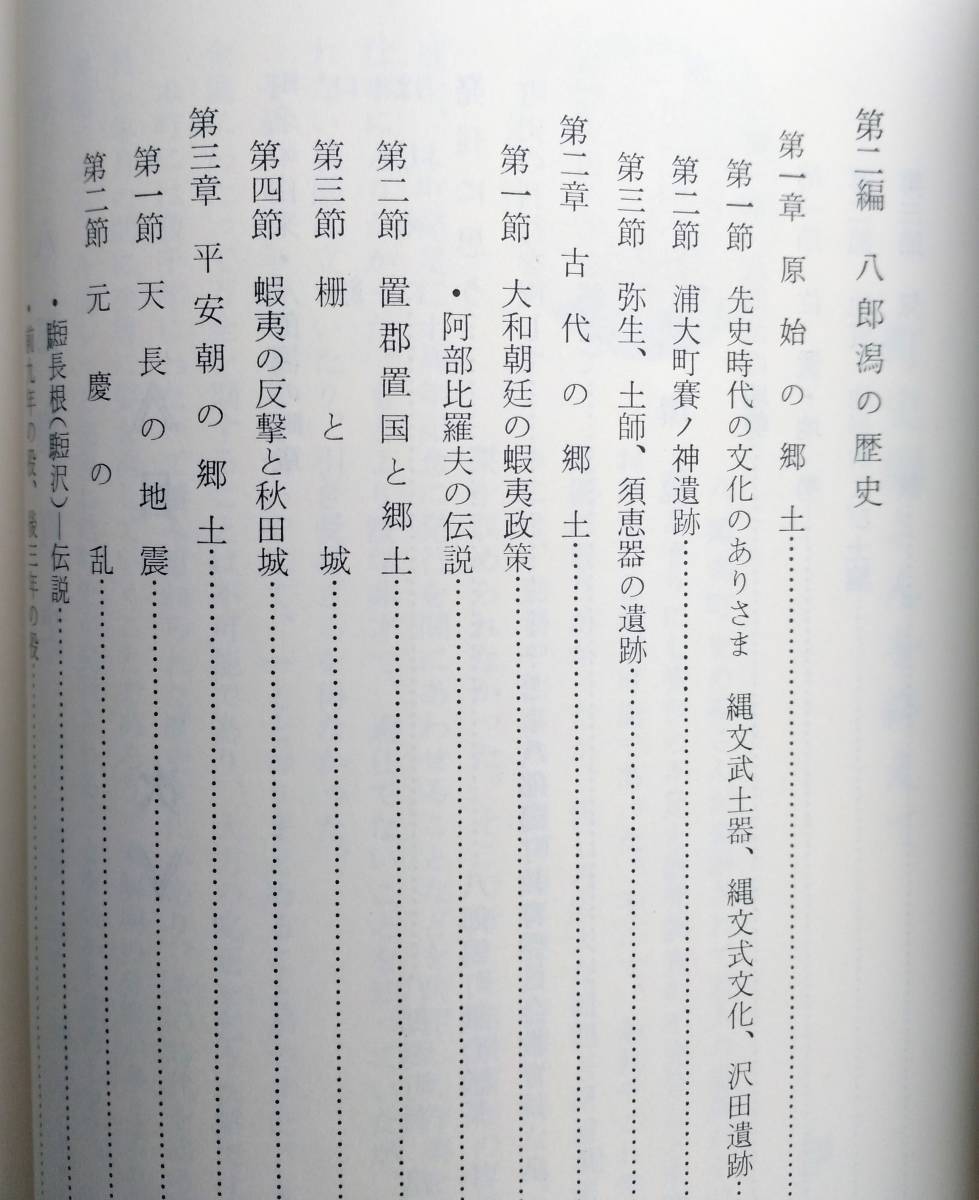 第二編　八郎潟の歴史
第一章　原始の郷土……………………
第一節　先史時代の文化のありさま　縄文武土器、縄文式文化、沢田遺跡…
第二節　浦大町賽ノ神遺跡……………………
第三節　弥生、土師、須恵器の遺跡……………………
第二章　古代の郷土……………………
第一節　大和朝廷の蝦夷政策……………………
・阿部比羅夫の伝説……………………
第二節　置郡置国と郷土……………………
第三節　柵と城……………………
第四節　蝦夷の反撃と秋田城……………………
第三章　平安朝の郷土……………………
第一節　天長の地震……………………
第二節　元慶の乱……………………
長根(沢)―伝説……………………
・前九年の役、後三年の役……………………